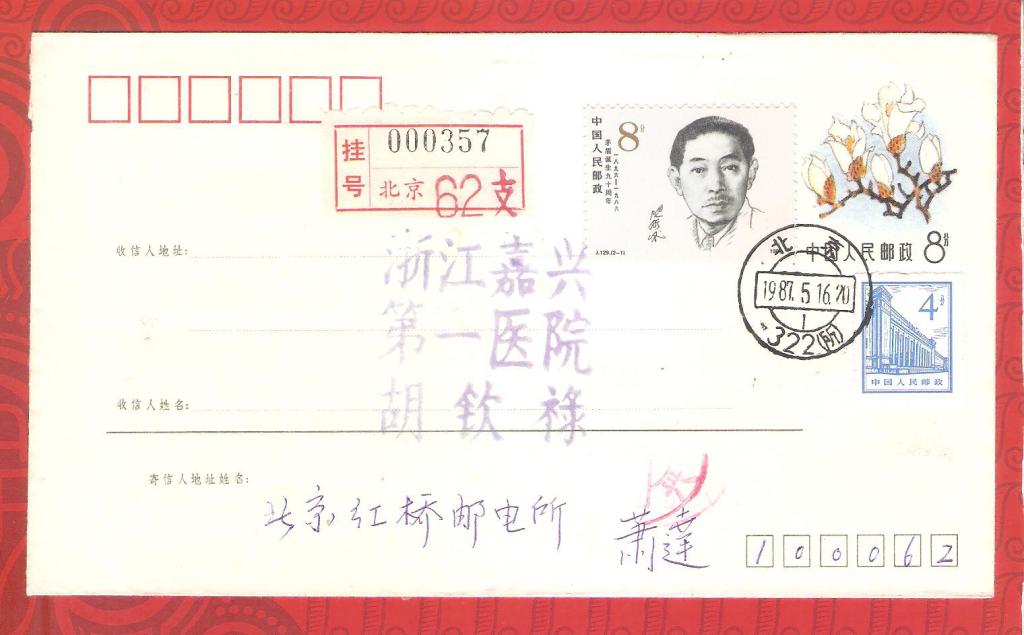 挂号
000357
北京
62支
中国人民邮政
8分
茅盾诞生九十周年
一八九六—一九八六
J.129.(2-1)
中国人民邮政 8分
北京
1987.5.16.20
1
322(所)
4分
中国人民邮政
收信人地址:
浙江嘉兴
第一医院
收信人姓名:
胡钦禄
寄信人地址姓名:
北京红桥邮电所 萧莲
100062